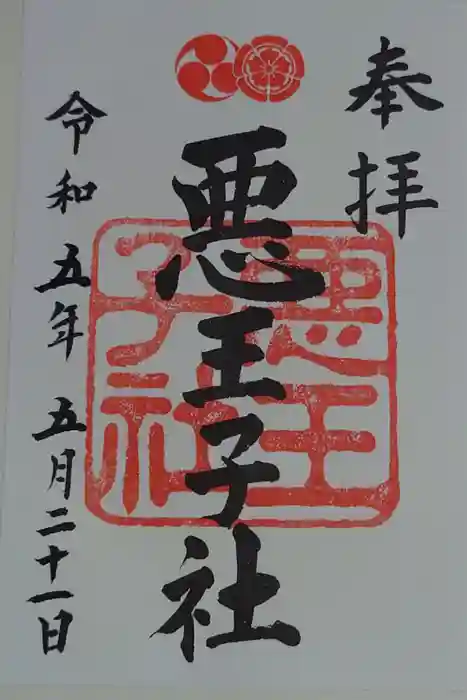 奉拝
悪王子社
悪王子社
令和五年五月二十一日